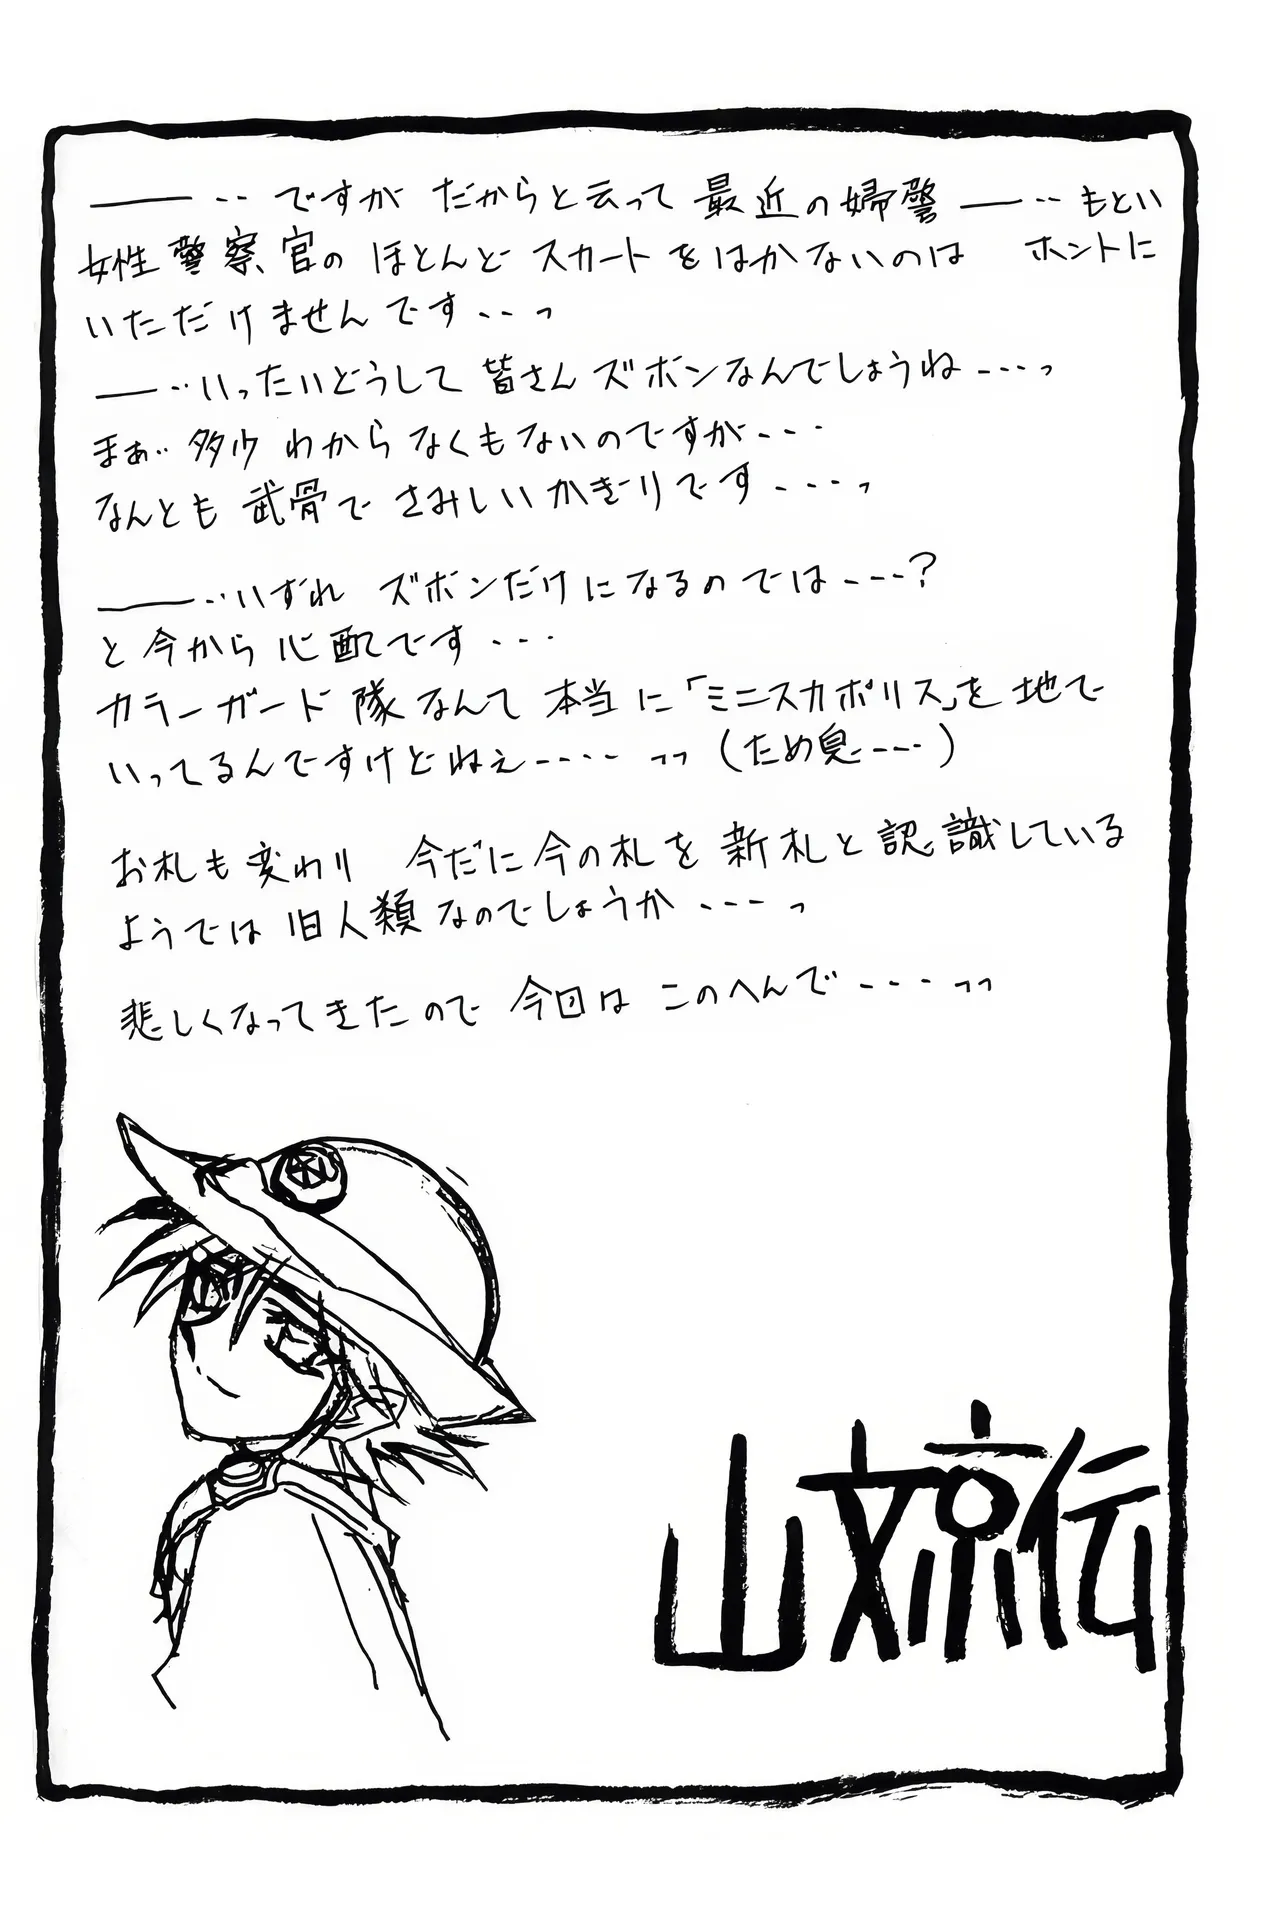 ――‥ですが だからと云って 最近の婦警――‥もとい
女性警察官の ほとんど スカートをはかないのは ホントに
いただけませんです‥‥っ
――‥いったいどうして 皆さん ズボンなんでしょうね‥‥っ
まぁ‥多少 わからなくもないのですが‥‥
なんとも 武骨で さみしいかぎりです‥‥っ
――‥いずれ ズボンだけになるのでは‥‥?
と 今から 心配です‥‥
カラーガード隊なんて 本当に「ミニスカポリス」を 地で
いってるんですけどねぇ‥‥‥っっ(ため息‥‥)
お札も変わり 今だに今の札を 新札と認識している
ようでは 旧人類なのでしょうか‥‥っ
悲しくなってきたので 今回は このへんで‥‥っっ
山文京伝